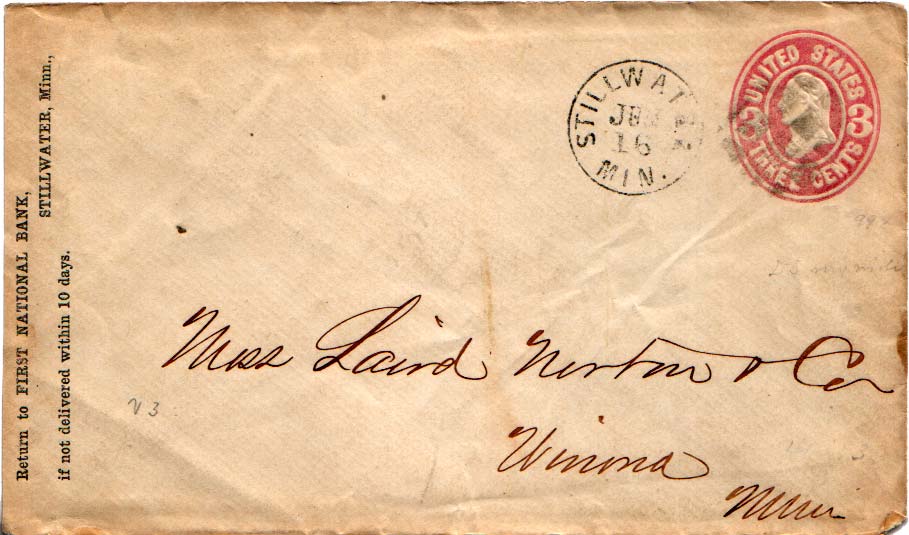 Return to FIRST NATIONAL BANK,
STILLWATER, Minn.,
if not delivered within 10 days.
STILLWATER
JUN
16
MIN.
UNITED STATES
3 3
THREE CENTS
Mess Laird Norton & Co
Winona
Minn
V 3